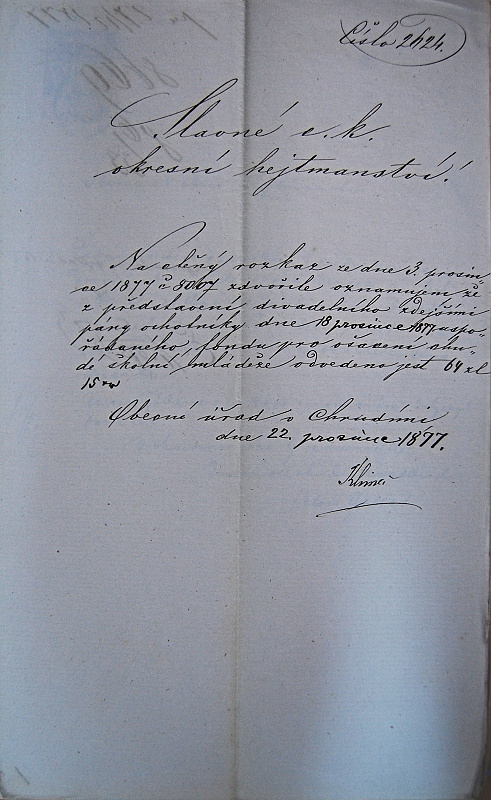 Číslo 2624.
Slavné c. k.
okresní hejtmanství!
Na ctěný rozkaz ze dne 3. prosin-
ce 1877 č 8067 zdvořile oznamujem že
z představení divadelního zdejšími
pány ochotníky dne 18 prosince 1877 uspo-
řádaného, fondu pro ošacení chu-
dé školní mládeže odvedeno jest 64 zl
15 kr
Obecní úřad v Chrudimi
dne 22. prosince 1877.
Klimeš